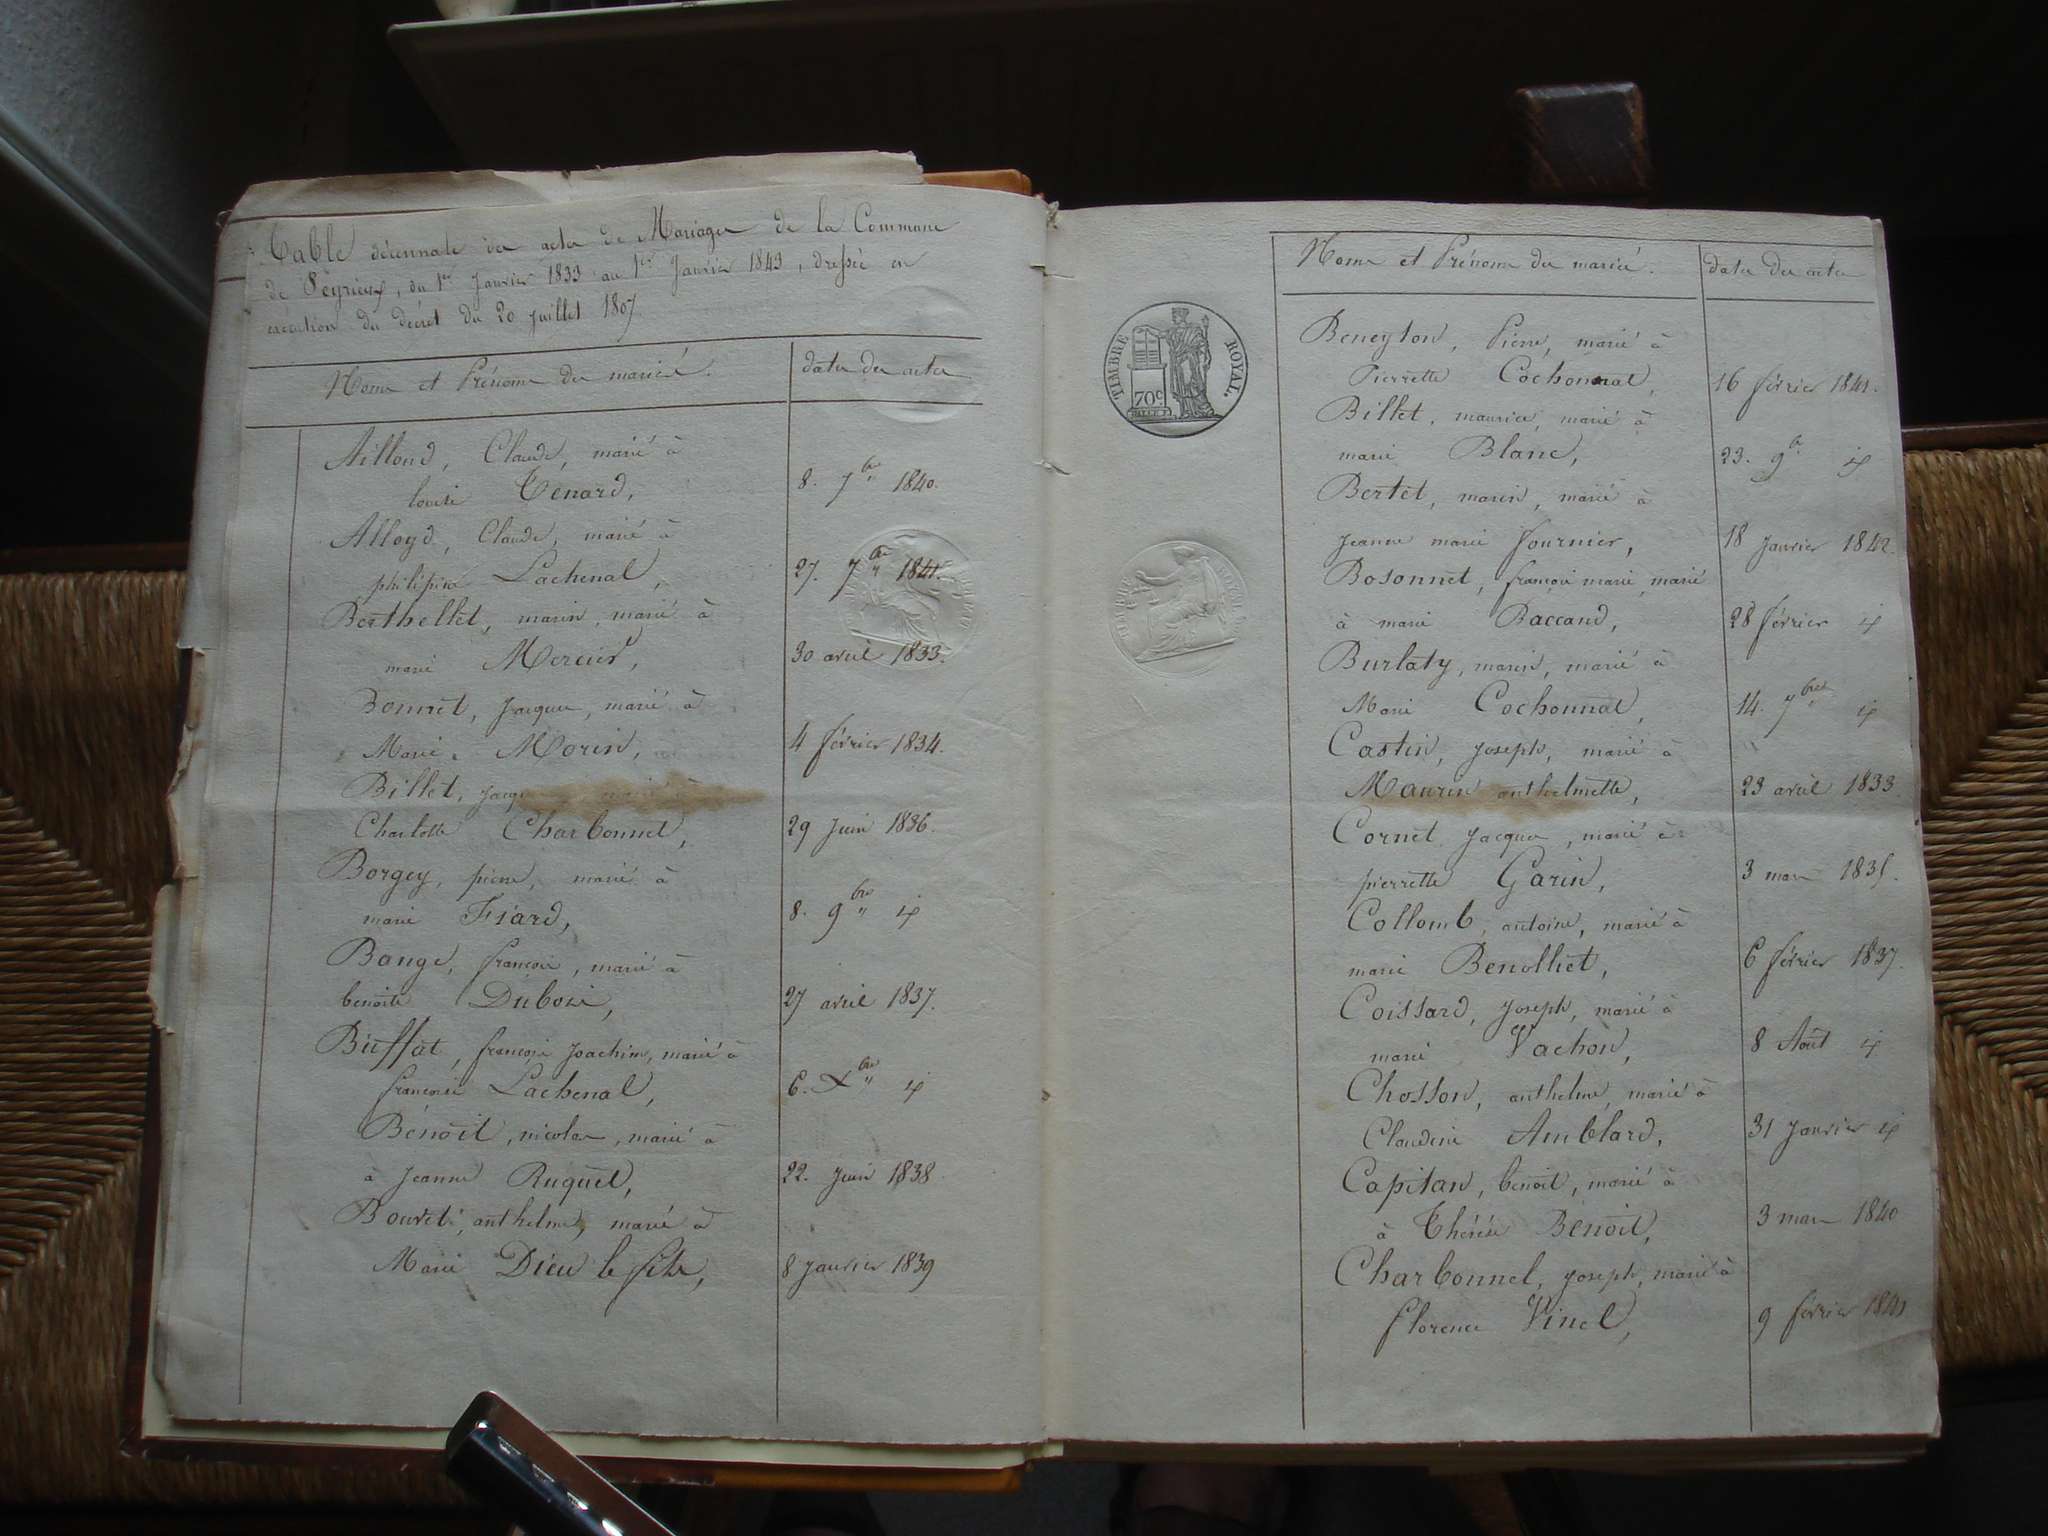 Table décennale des actes de Mariages de la Commune
de Peyrieux, du 1er Janvier 1833 au 1er Janvier 1843, dressée en
exécution du décret du 20 juillet 1807.
Noms et Prénoms des mariés.
dates des actes
Ailloud, Claude, marié à
louise Tenard,
8. 7bre 1840.
Alloyd, Claude, marié à
philipine Lachenal,
27. 7bre 1841.
Berthellet, marin, marié à
marie Mercier,
30 avril 1833.
Bonnet, Jacques, marié à
Marie Morin,
4 février 1834.
Billet, jacques marié à
Charlotte Charbonnel,
29 Juin 1836.
Borgey, pierre, marié à
marie Fiard,
8. 9bre id
Bange, françois, marié à
benoite Dubois,
27 avril 1837.
Buffat, françois Joachim, marié à
françoise Lachenal,
6. Xbre id
Benoit, nicolas, marié à
à Jeanne Ruquet,
22. Juin 1838
Bouvet, anthelme, marié à
Marie Dieu le fils,
8 Janvier 1839
Noms et Prénoms des mariés.
dates des actes
TIMBRE ROYAL.
70c
Beneyton, Pierre, marié à
Pierrette Cochonnat,
16 février 1841.
Billet, maurice, marié à
marie Blanc,
23. 9b id
Bertet, marin, marié à
jeanne marie fournier,
18 Janvier 1842.
Bosonnet, françois marie, marié
à marie Baccand,
28 février id
Burlaty, marin, marié à
Marie Cochonnat,
14. 7bre id
Castin, Joseph, marié à
Maurin anthelmette,
23 avril 1833.
Cornet Jacques, marié à
pierrette Garin,
3 mars 1835.
Collomb, antoine, marié à
marie Benolliet,
6 février 1837.
Coissard, Joseph, marié à
marie Vachon,
8 Août id
Chosson, anthelme, marié à
Claudine Amblard,
31 Janvier id
Capitan, benoit, marié à
à Thérèse Benoit,
3 mars 1840
Charbonnel, Joseph, marié à
florence Vinel,
9 février 1841